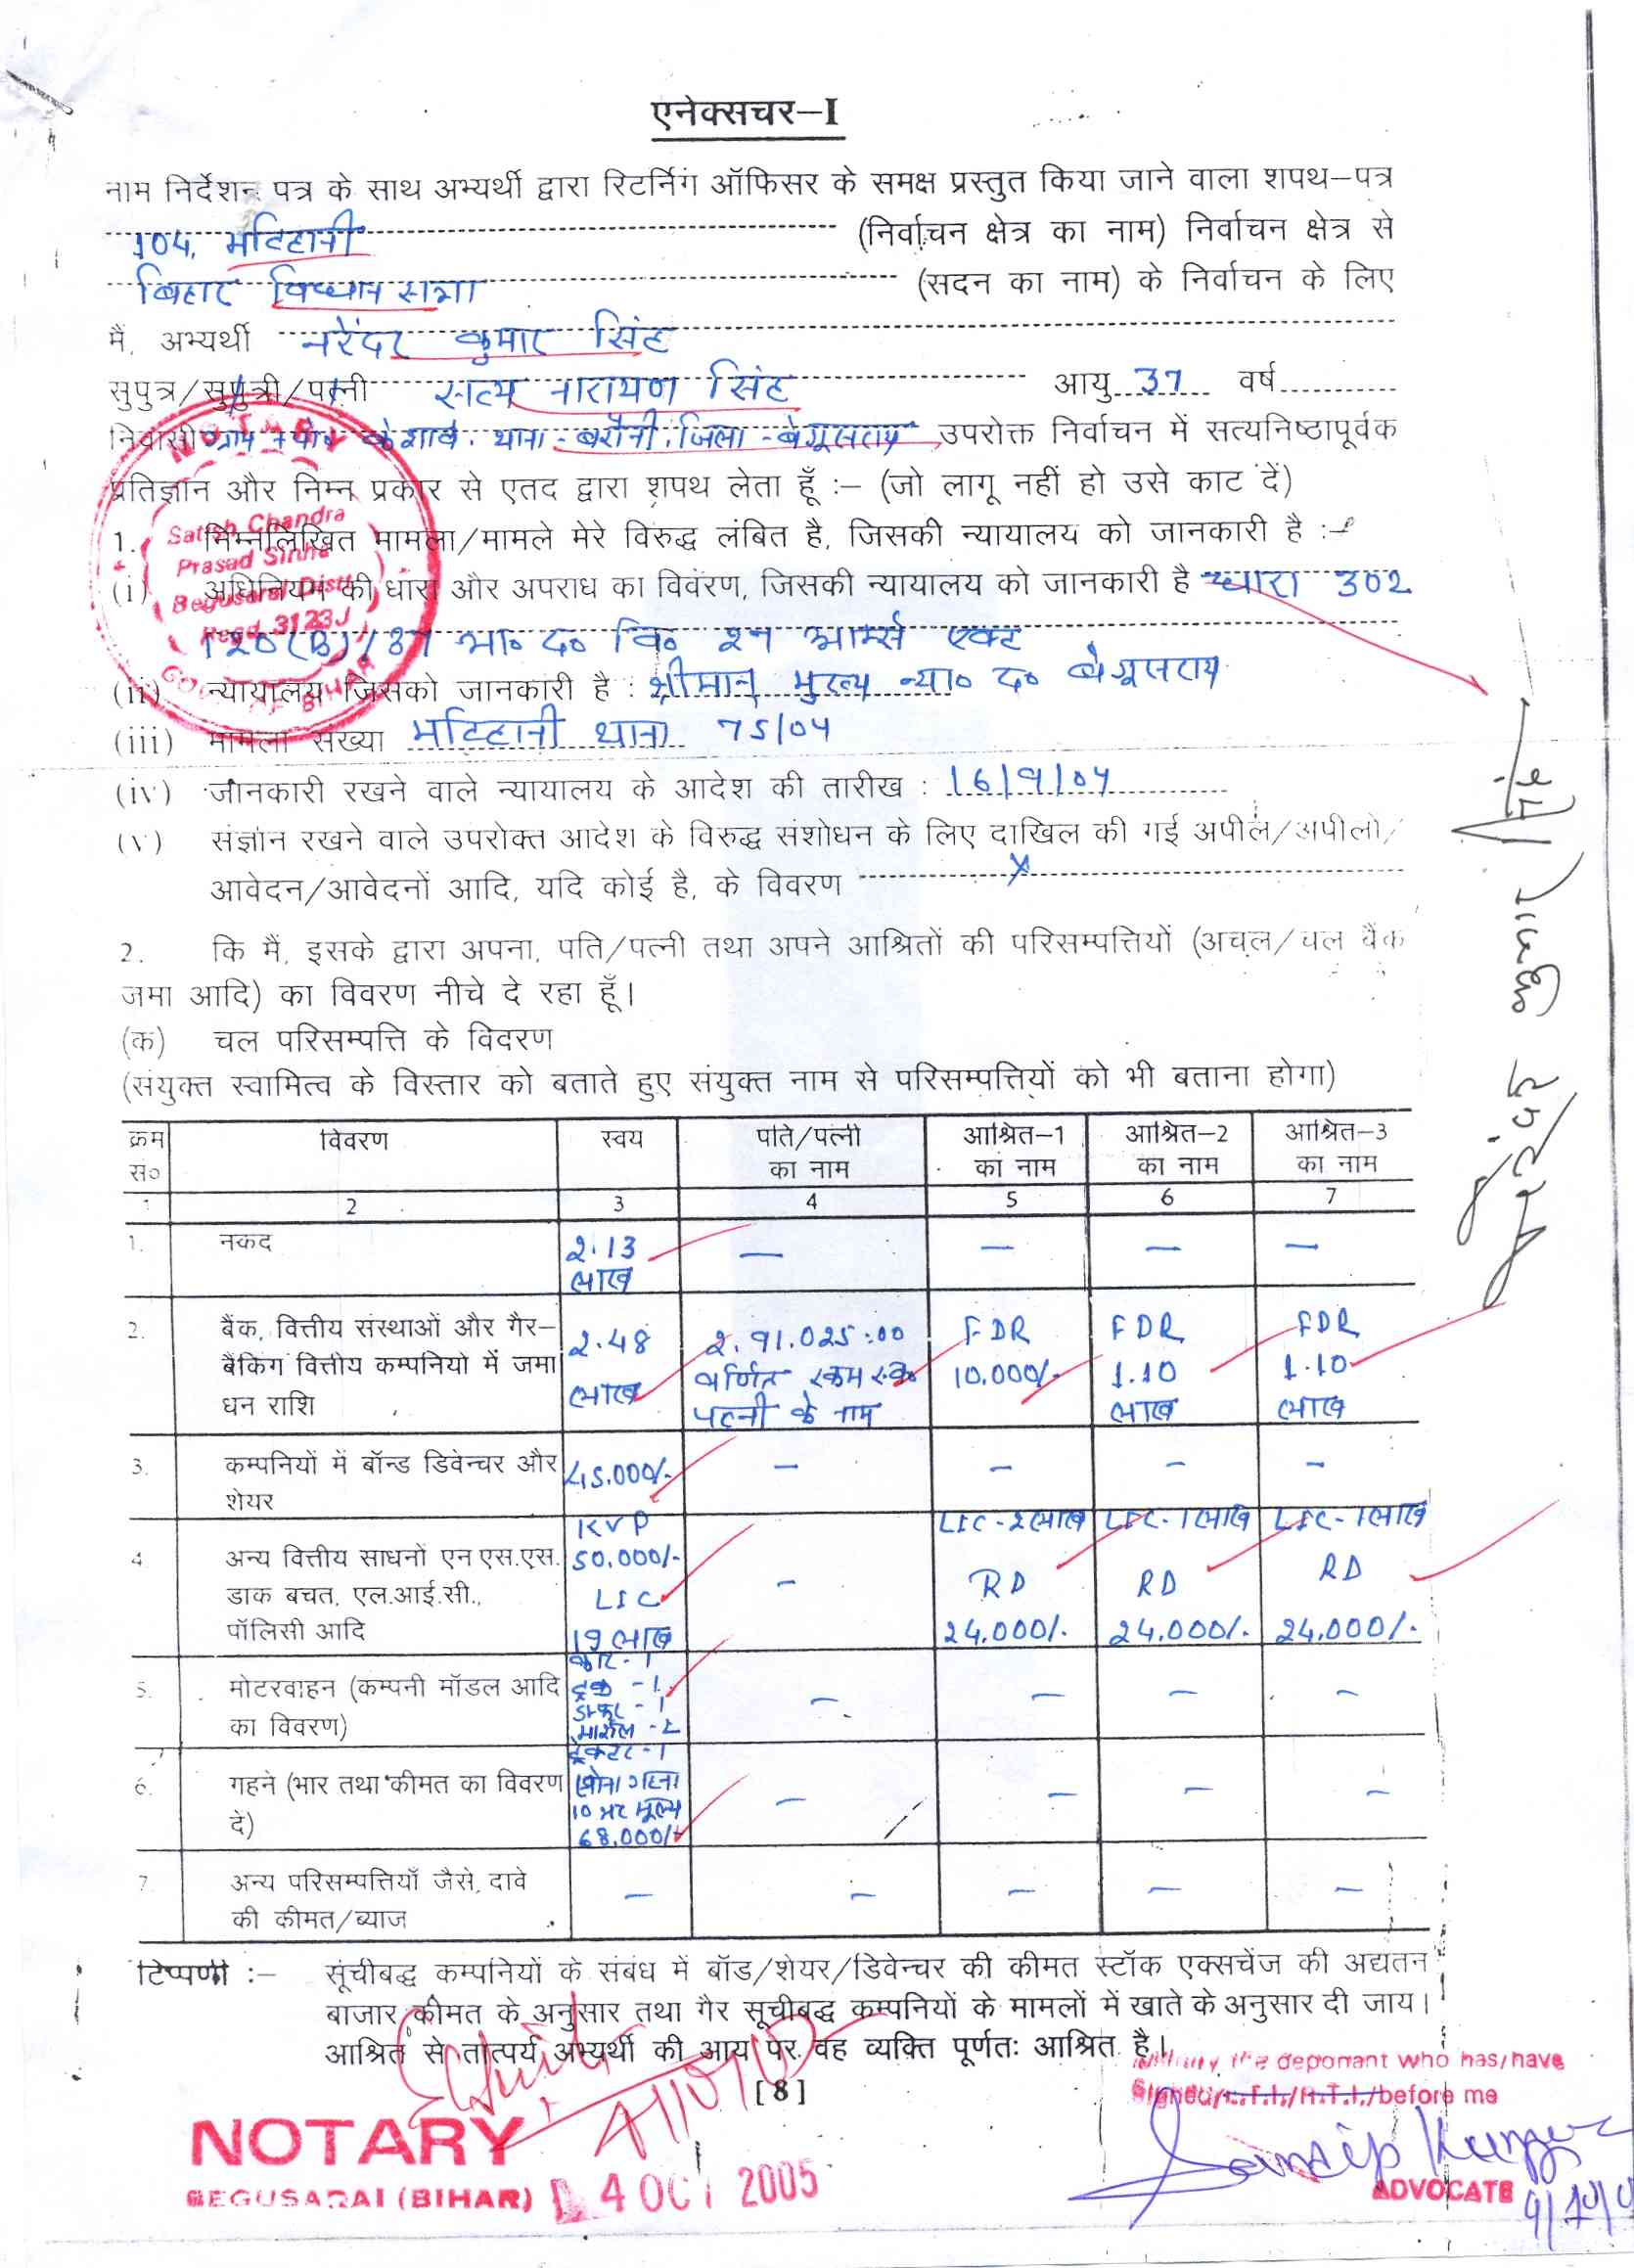 एनेक्सचर–I
नाम निर्देशन पत्र के साथ अभ्यर्थी द्वारा रिटर्निग ऑफिसर के समक्ष प्रस्तुत किया जाने वाला शपथ–पत्र
104. मटिहानी (निर्वाचन क्षेत्र का नाम) निर्वाचन क्षेत्र से
बिहार विधान सभा (सदन का नाम) के निर्वाचन के लिए
मैं, अभ्यर्थी नरेंदर कुमार सिंह
सुपुत्र/सुपुत्री/पत्नी सत्य नारायण सिंह आयु 37 वर्ष
निवासी ग्राम थाना - बरौनी, जिला - बेगूसराय उपरोक्त निर्वाचन में सत्यनिष्ठापूर्वक
प्रतिज्ञान और निम्न प्रकार से एतद द्वारा शपथ लेता हूँ :– (जो लागू नहीं हो उसे काट दें)
1. निम्नलिखित मामला/मामले मेरे विरुद्ध लंबित है, जिसकी न्यायालय को जानकारी है :–
(i) अधिनियम की धारा और अपराध का विवरण, जिसकी न्यायालय को जानकारी है धारा 302
120(B)/37 भा० द० वि० २७ आर्म्स एक्ट
(ii) न्यायालय जिसको जानकारी है : श्रीमान् मुख्य न्या० द० बेगूसराय
(iii) मामला संख्या मटिहानी थाना 75/04
(iv) जानकारी रखने वाले न्यायालय के आदेश की तारीख : 16/9/04
(v) संज्ञान रखने वाले उपरोक्त आदेश के विरुद्ध संशोधन के लिए दाखिल की गई अपील/अपीलो/
आवेदन/आवेदनों आदि, यदि कोई है, के विवरण x
2. कि मैं, इसके द्वारा अपना, पति/पत्नी तथा अपने आश्रितों की परिसम्पत्तियों (अचल/चल बैंक
जमा आदि) का विवरण नीचे दे रहा हूँ।
(क) चल परिसम्पत्ति के विवरण
(संयुक्त स्वामित्व के विस्तार को बताते हुए संयुक्त नाम से परिसम्पत्तियों को भी बताना होगा)
क्रम स० विवरण स्वय पति/पत्नी का नाम आश्रित–1 का नाम आश्रित–2 का नाम आश्रित–3 का नाम
1 2 3 4 5 6 7
1. नकद 2.13 लाख — — — —
2. बैंक, वित्तीय संस्थाओं और गैर– 2.48 2.91.025:00 FDR FDR FDR
बैंकिग वित्तीय कम्पनियो में जमा लाख वर्णित रकम 10,000/- 1.10 1.10
धन राशि पत्नी के नाम लाख लाख
3. कम्पनियों में बॉन्ड डिवेन्चर और 45,000/- — — — —
शेयर
4 अन्य वित्तीय साधनों एन एस.एस. KVP 50,000/- — LIC - 2 लाख LIC - 1 लाख LIC - 1 लाख
डाक बचत, एल.आई.सी., LIC RD RD RD
पॉलिसी आदि 19 लाख 24,000/- 24,000/- 24,000/-
5. मोटरवाहन (कम्पनी मॉडल आदि कार - 1 ट्रक - 1 — — — —
का विवरण) मार्शल - 2 ट्रेक्टर - 1
6. गहने (भार तथा कीमत का विवरण सोना गहना — — — —
दे) 10 भर मूल्य 68,000/-
7 अन्य परिसम्पत्तियाँ जैसे, दावे — — — — —
की कीमत/ब्याज
टिप्पणी :– सूंचीबद्ध कम्पनियों के संबंध में बॉड/शेयर/डिवेन्चर की कीमत स्टॉक एक्सचेंज की अद्यतन
बाजार कीमत के अनुसार तथा गैर सूचीबद्ध कम्पनियों के मामलों में खाते के अनुसार दी जाय।
आश्रित से तात्पर्य अभ्यर्थी की आय पर वह व्यक्ति पूर्णतः आश्रित है।
[8]
the deponant who has/have
Signed/L.T.I./R.T.I./before me
NOTARY
BEGUSARAI (BIHAR)
4 OCT 2005
ADVOCATE
Satish Chandra
Prasad Sinha
Begusarai Distt
Regd. 3123
नरेन्द्र कुमार सिंह